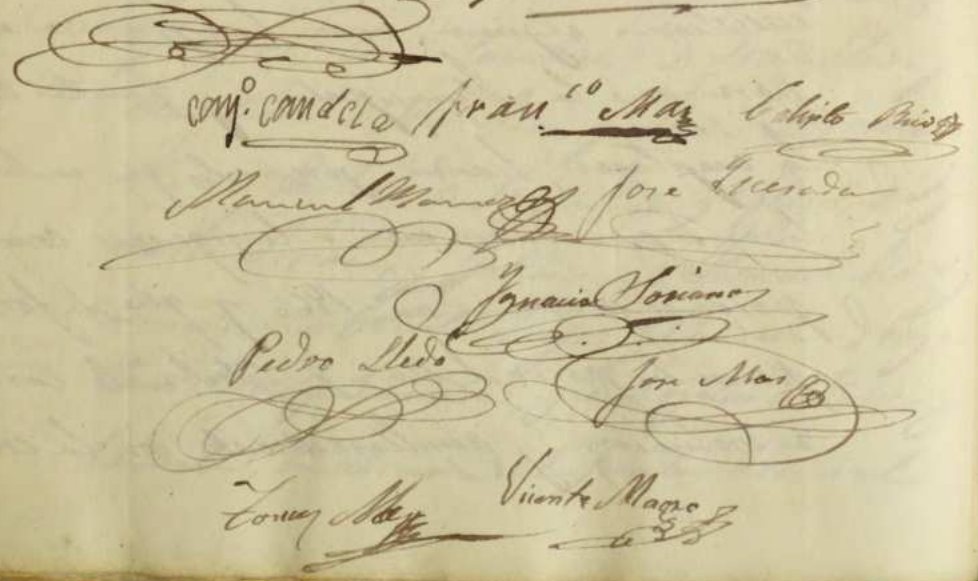 Cayº. Candela Franco Mas Calisto Rico
Manuel Jose Quesada
Ygnacio Soriano
Pedro Lledo
Jose Mas
Tomas Mas Vicente Magro